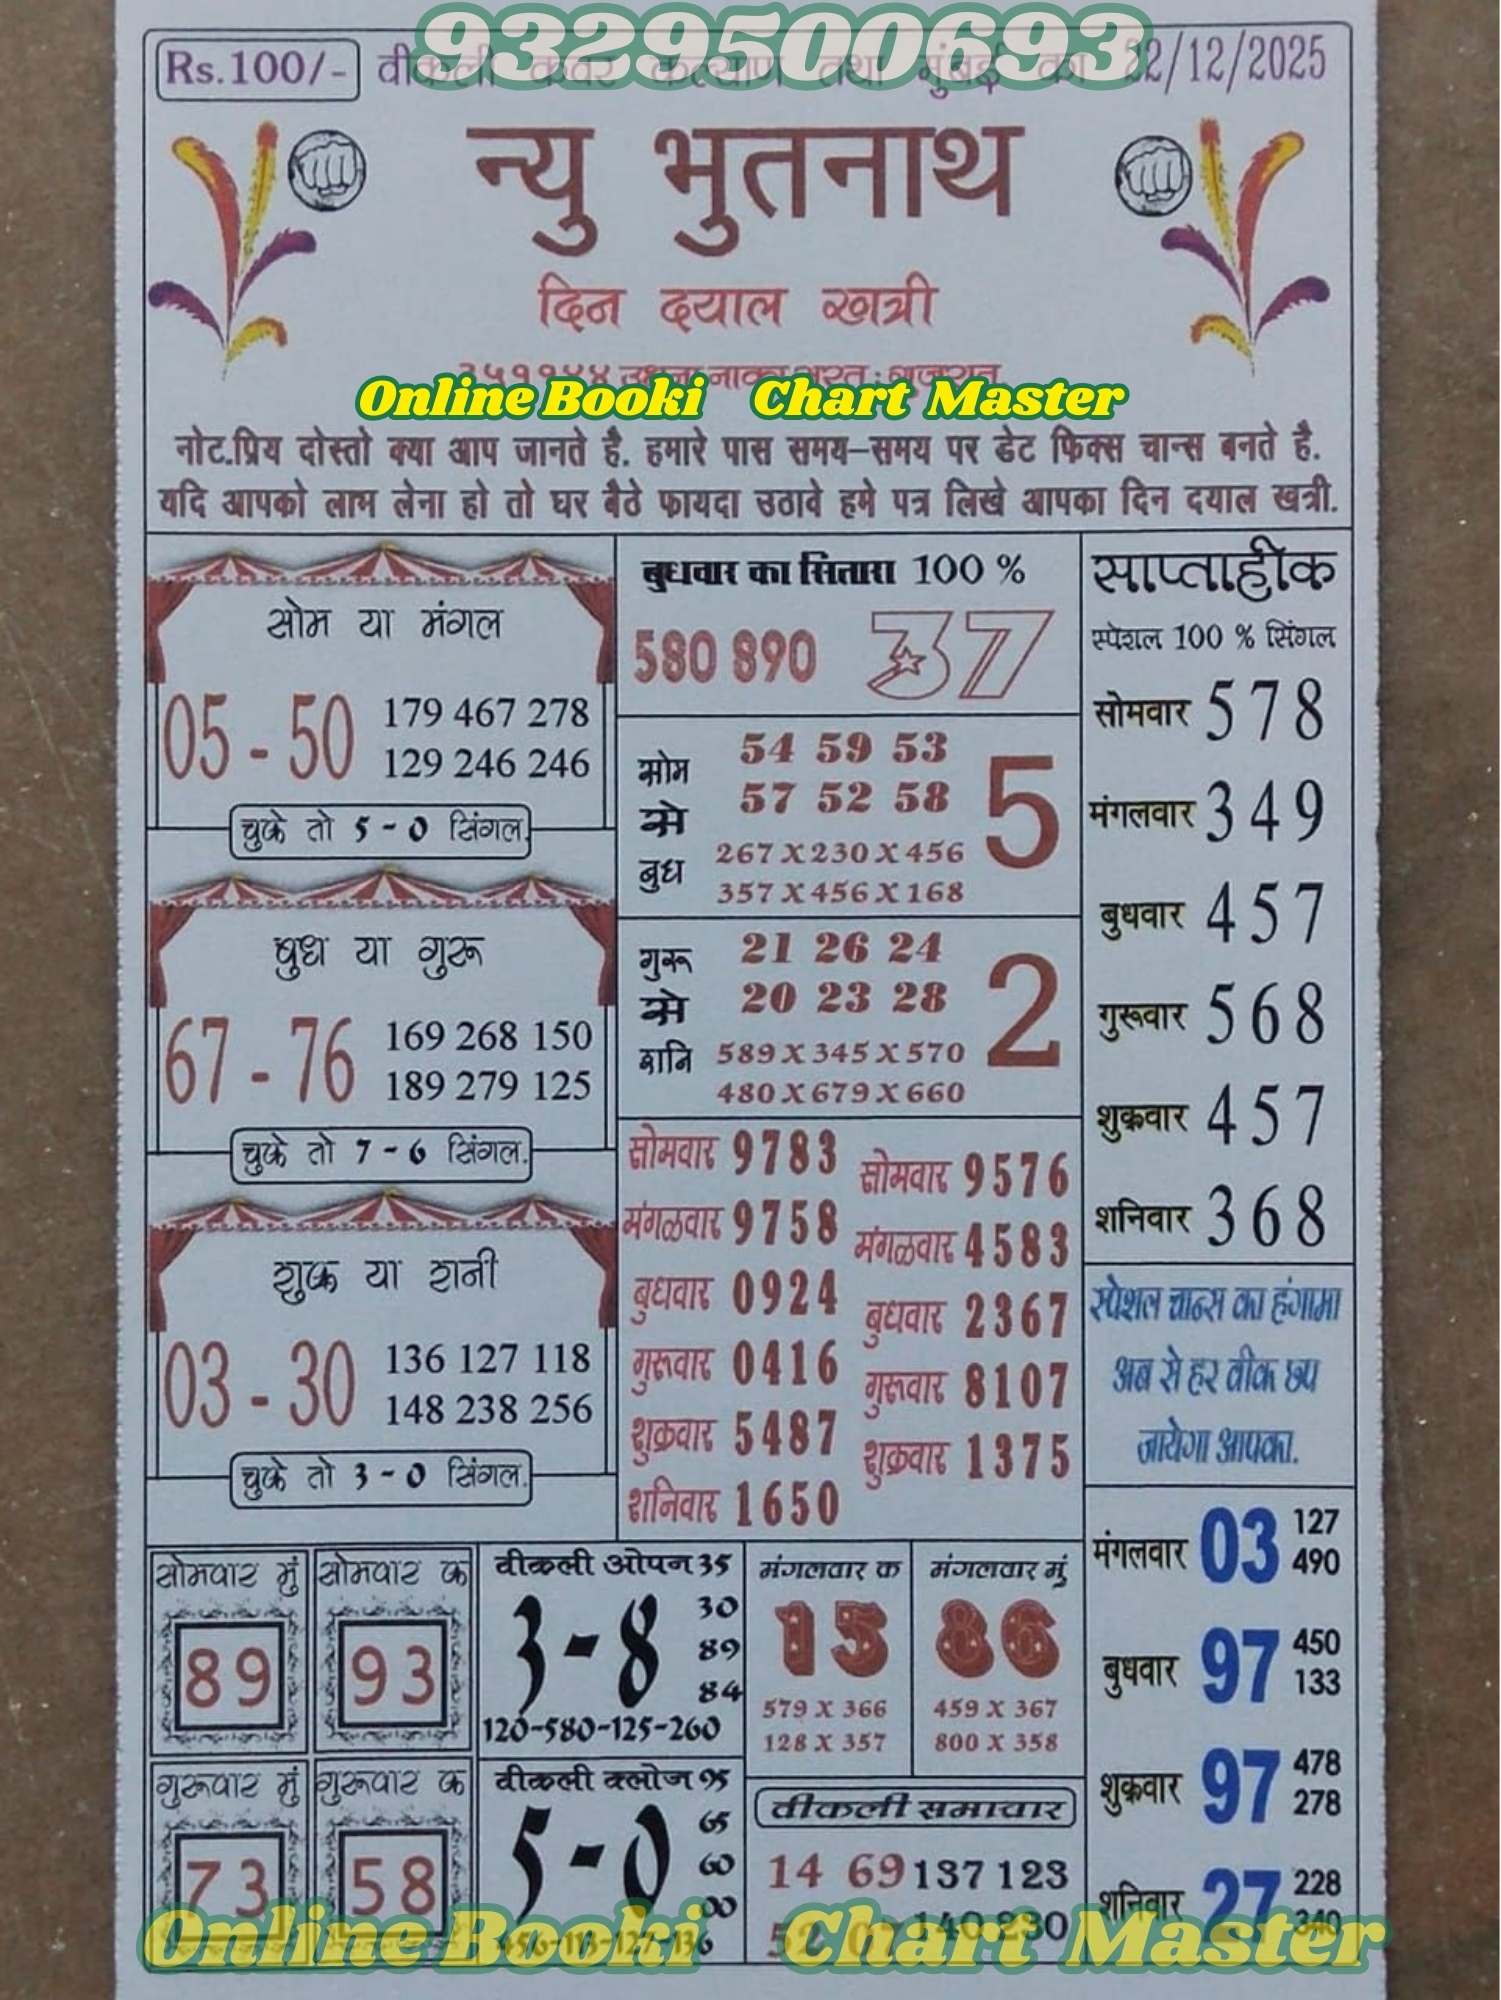 9329500693
Rs.100/- वीकली कवर कल्याण तथा मुंबई का 22/12/2025
न्यु भुतनाथ
दिन दयाल खत्री
Online Booki Chart Master
नोट.प्रिय दोस्तो क्या आप जानते है. हमारे पास समय-समय पर डेट फिक्स चान्स बनते है.
यदि आपको लाभ लेना हो तो घर बैठे फायदा उठावे हमे पत्र लिखे आपका दिन दयाल खत्री.
सोम या मंगल
05 - 50
179 467 278
129 246 246
चुके तो 5 - 0 सिंगल.
बुध या गुरू
67 - 76
169 268 150
189 279 125
चुके तो 7 - 6 सिंगल.
शुक्र या शनी
03 - 30
136 127 118
148 238 256
चुके तो 3 - 0 सिंगल.
बुधवार का सितारा 100 %
580 890 37
सोम से बुध
54 59 53
57 52 58
5
267 X 230 X 456
357 X 456 X 168
गुरू से शनि
21 26 24
20 23 28
2
589 X 345 X 570
480 X 679 X 660
सोमवार 9783
मंगळवार 9758
बुधवार 0924
गुरूवार 0416
शुक्रवार 5487
शनिवार 1650
सोमवार 9576
मंगळवार 4583
बुधवार 2367
गुरूवार 8107
शुक्रवार 1375
साप्ताहीक
स्पेशल 100 % सिंगल
सोमवार 578
मंगलवार 349
बुधवार 457
गुरूवार 568
शुक्रवार 457
शनिवार 368
स्पेशल चान्स का हंगामा
अब से हर वीक छप
जायेगा आपका.
मंगलवार 03 127 490
बुधवार 97 450 133
शुक्रवार 97 478 278
शनिवार 27 228 340
सोमवार मुं
89
सोमवार क
93
गुरूवार मुं
73
गुरूवार क
58
वीकली ओपन 35
3 - 8
30
89
84
120-580-125-260
वीकली क्लोज 95
5 - 0
65
60
00
456-113-127-136
मंगलवार क
15
579 X 366
128 X 357
मंगलवार मुं
86
459 X 367
800 X 358
वीकली समाचार
14 69 137 123
52 07 140 230
Online Booki Chart Master